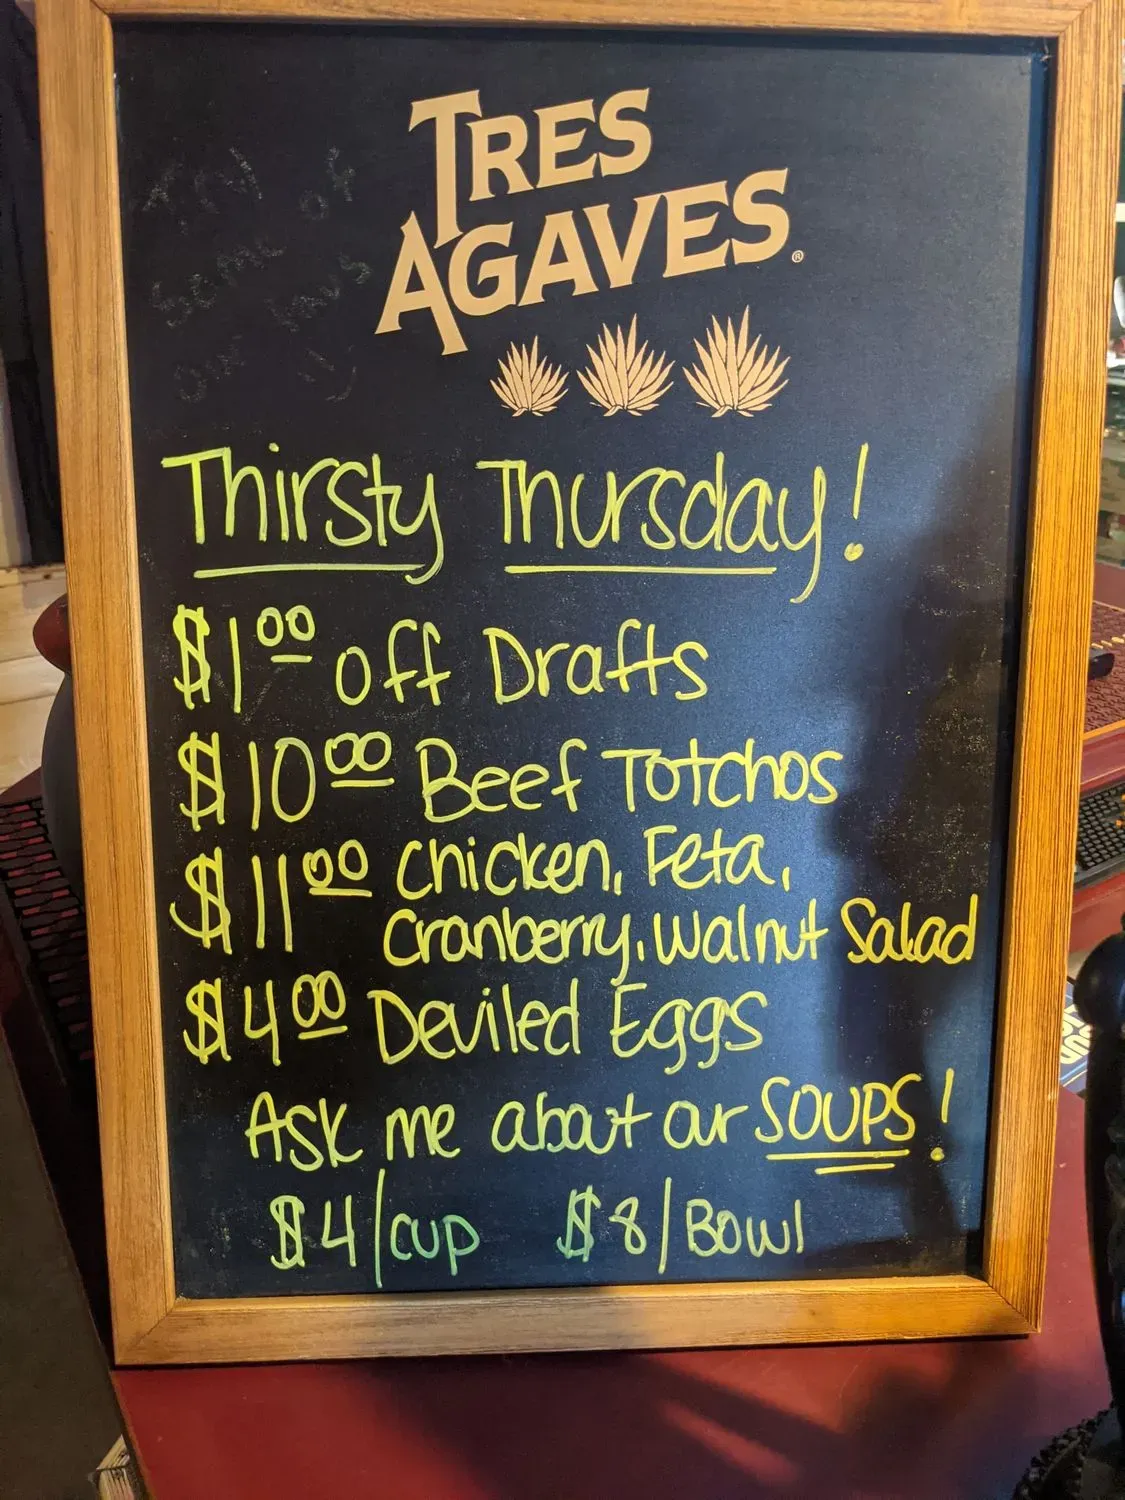 TRES
AGAVES®
Try
some of
our favs
Thirsty Thursday!
$1.00 off Drafts
$10.00 Beef Totchos
$11.00 Chicken, Feta,
Cranberry, Walnut Salad
$4.00 Deviled Eggs
Ask me about our SOUPS!
$4/cup $8/Bowl